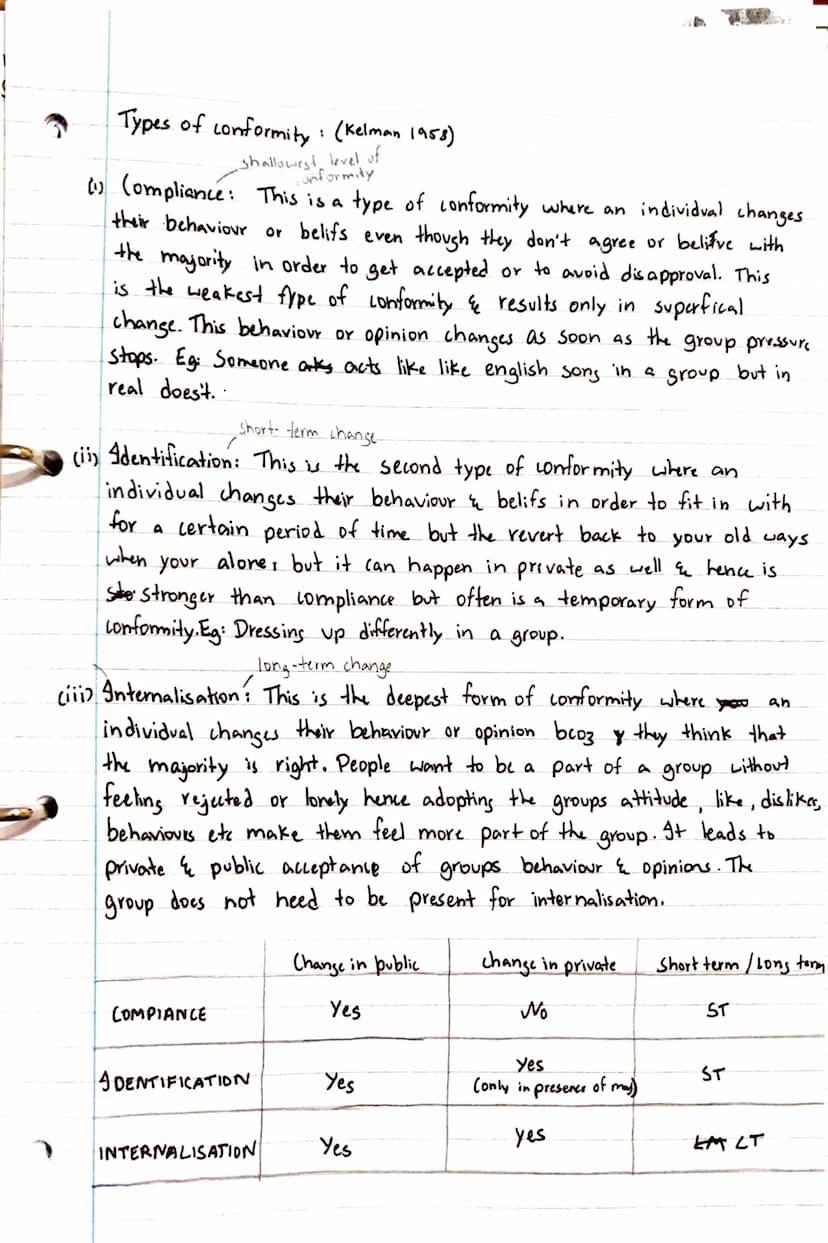 Types of conformity : (Kelman 1958)
shallowest level of
conformity
(i) Compliance: This is a type of conformity where an individual changes
their behaviour or belifs even though they don't agree or belifve with
the majority in order to get accepted or to avoid disapproval. This
is the weakest type of conformity & results only in superfical
change. This behaviour or opinion changes as soon as the group pressure
stops. Eg: Someone acts like like english song in a group but in
real does't.
short-term change
(ii) Identification: This is the second type of conformity where an
individual changes their behaviour & belifs in order to fit in with
for a certain period of time but the revert back to your old ways
when your alone, but it can happen in private as well & hence is
stronger than compliance but often is a temporary form of
conformity. Eg: Dressing up differently in a group.
long-term change
(iii) Internalisation: This is the deepest form of conformity where an
individual changes their behaviour or opinion bcoz they think that
the majority is right. People want to be a part of a group without
feeling rejected or lonely hence adopting the groups attitude, like, dislikes,
behaviours etc make them feel more part of the group. It leads to
private & public acceptance of groups behaviour & opinions. The
group does not need to be present for internalisation.
Change in public change in private Short term / Long term
COMPIANCE Yes No ST
IDENTIFICATION Yes Yes (only in presence of maj) ST
INTERNALISATION Yes yes LT